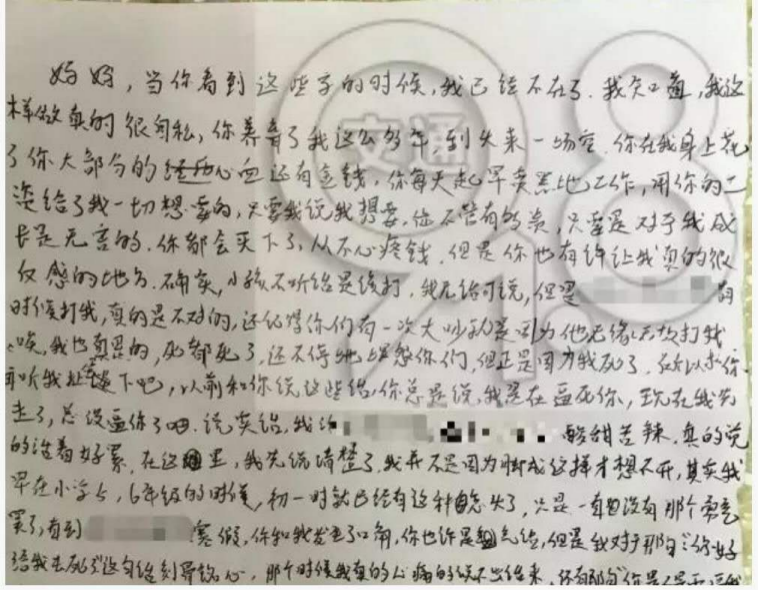 妈妈，当你看到这些字的时候，我已经不在了．我知道，我这
样做真的很自私，你养育了我这么多年，到头来一场空．你在我身上花
了你大部分的心血还有金钱．你每天起早卖黑地工作，用你的
给了我一切想要的，只要我说我想要，你不管有多贵，只要是对于我成
长是无害的．你都会买下了，从不心疼钱．但是你也有许让我真的很
反感的地方．确实，小孩不听话是该打．我无话可说，但是
时候打我，真的是不对的，还记得你们有一次大吵就是因为他无缘无故打我
唉，我也真是的，死都死了，还不停地埋怨你们，但正是因为我死了．所以求你
听我下吧，以前和你说这些话，你总是说，我是在逼死你，现在我先
走了，总没逼你了吧．说实话，我 酸甜苦辣．真的说
的活着好累．在这里，我先说清楚了，我并不是因为脚成这样才想不开，其实我
早在小学5，6年级的时候，初一时就已经有这种念头了，只是一直没有那个勇气
罢了，直到 寒假，你和我发生了口角，你也许是气话，但是我对于那句“你好
给我去死”这句话刻骨铭心，那个时候我真的心痛的说不出话来．还有那句“你是
交通
918